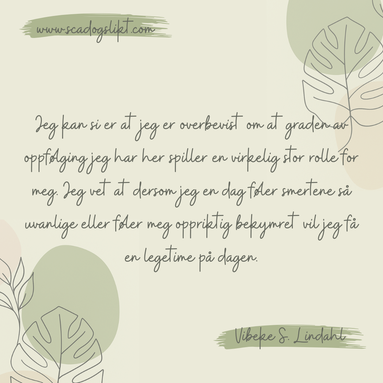 www.scadogslikt.com
Jeg kan si er at jeg er overbevist om at graden av
oppfølging jeg har her spiller en virkelig stor rolle for
meg. Jeg vet at dersom jeg en dag føler smertene så
uvanlige eller føler meg oppriktig bekymret vil jeg få
en legetime på dagen.
Vibeke S. Lindahl